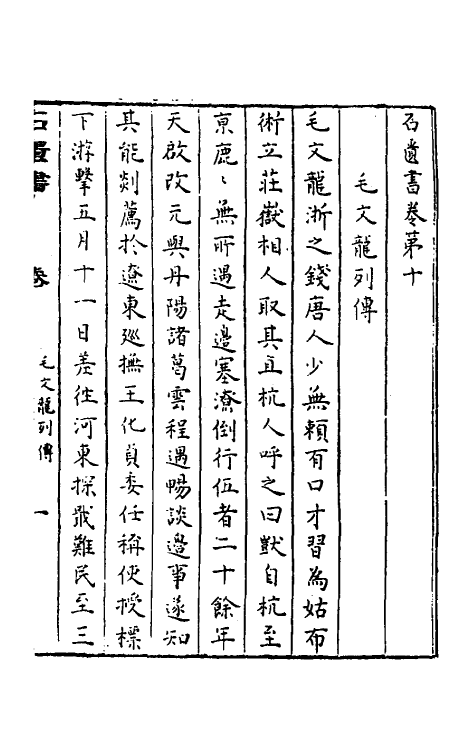 石匱書卷第十
毛文龍列傳
毛文龍浙之錢唐人少無賴有口才習為姑布
術立莊嶽相人取其直杭人呼之曰獃自杭至
京鹿〻無所遇走邊塞潦倒行伍者二十餘年
天啟改元與丹陽諸葛雲程遇暢談邊事遂知
其能剡薦於遼東廵撫王化貞委任稱使授標
下游擊五月十一日差徃河東探戢難民至三
石匱書 卷 毛文龍列傳 一